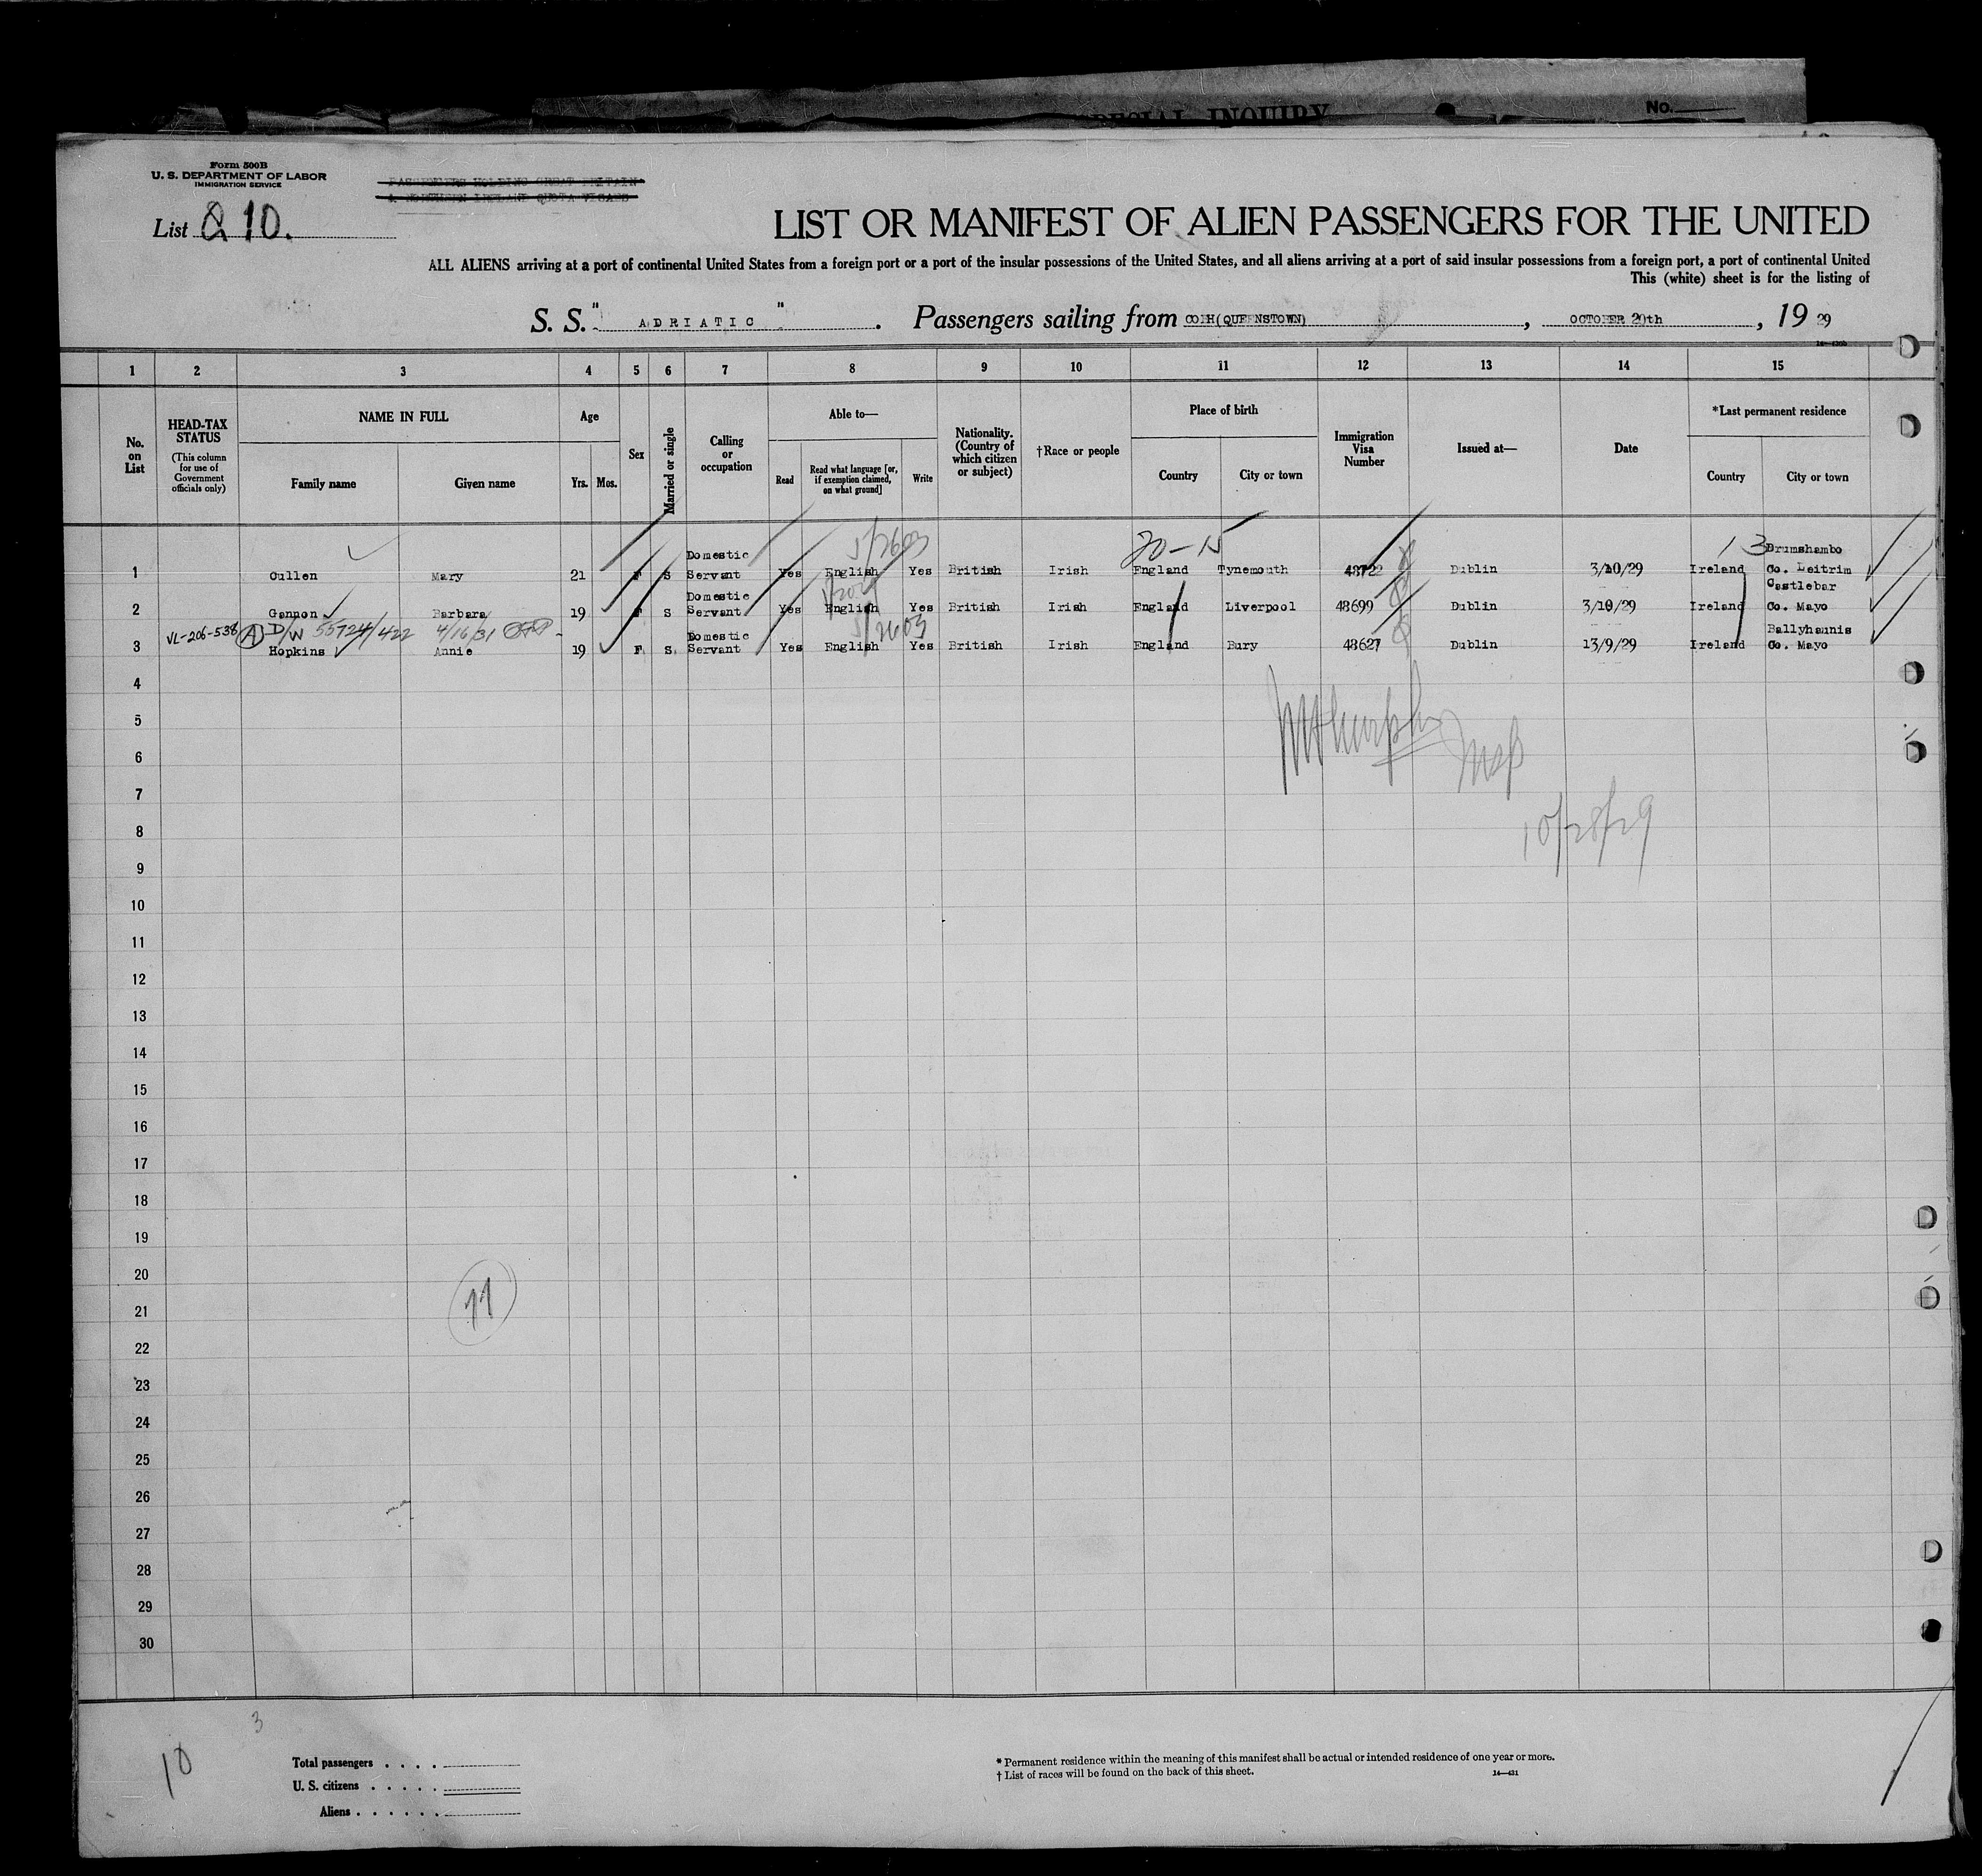 SPECIAL INQUIRY
No.
Form 500B
U. S. DEPARTMENT OF LABOR
IMMIGRATION SERVICE
PASSENGERS HOLDING GREAT BRITAIN
& NORTHERN IRELAND QUOTA VISAES
List Q 10.
LIST OR MANIFEST OF ALIEN PASSENGERS FOR THE UNITED
ALL ALIENS arriving at a port of continental United States from a foreign port or a port of the insular possessions of the United States, and all aliens arriving at a port of said insular possessions from a foreign port, a port of continental United
This (white) sheet is for the listing of
S. S. " ADRIATIC " . Passengers sailing from COBH(QUEENSTOWN) , OCTOBER 20th , 19 29
1 2 3 4 5 6 7 8 9 10 11 12 13 14 15
No. on List
HEAD-TAX STATUS
(This column for use of Government officials only)
NAME IN FULL
Family name Given name
Age
Yrs. Mos.
Sex
Married or single
Calling or occupation
Able to—
Read
Read what language [or, if exemption claimed, on what ground]
Write
Nationality. (Country of which citizen or subject)
†Race or people
Place of birth
Country City or town
Immigration Visa Number
Issued at—
Date
*Last permanent residence
Country City or town
5/2603 20-15 13
1 Cullen Mary 21 F S Domestic Servant Yes English Yes British Irish England Tynemouth 48722 Dublin 3/10/29 Ireland Drumshambo Co. Leitrim
2 Gannon Barbara 19 F S Domestic Servant Yes English Yes British Irish England Liverpool 48699 Dublin 3/10/29 Ireland Castlebar Co. Mayo
VL-206-538 (A) D/W 55724/422 4/16/31
3 Hopkins Annie 19 F S Domestic Servant Yes English Yes British Irish England Bury 48627 Dublin 13/9/29 Ireland Ballyhaunis Co. Mayo
4
5
6
7
8
10/28/29
9
10
11
12
13
14
15
16
17
18
19
20
11
21
22
23
24
25
26
27
28
29
30
3
10
Total passengers . . . .
U. S. citizens . . . . .
Aliens . . . . . .
* Permanent residence within the meaning of this manifest shall be actual or intended residence of one year or more.
† List of races will be found on the back of this sheet.
14—431